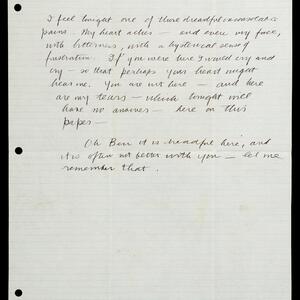 I feel tonight one of those dreadful
pains. My heart aches — and even my face,
with bitterness, with a hysterical sense of
frustration. If you were here I would cry and
cry — so that perhaps your heart might
hear me. You are not here — and here
are my tears — which tonight will
have no answer — here on this
paper —
Oh Ben it is dreadful here, and
it is often not better with you — let me
remember that.